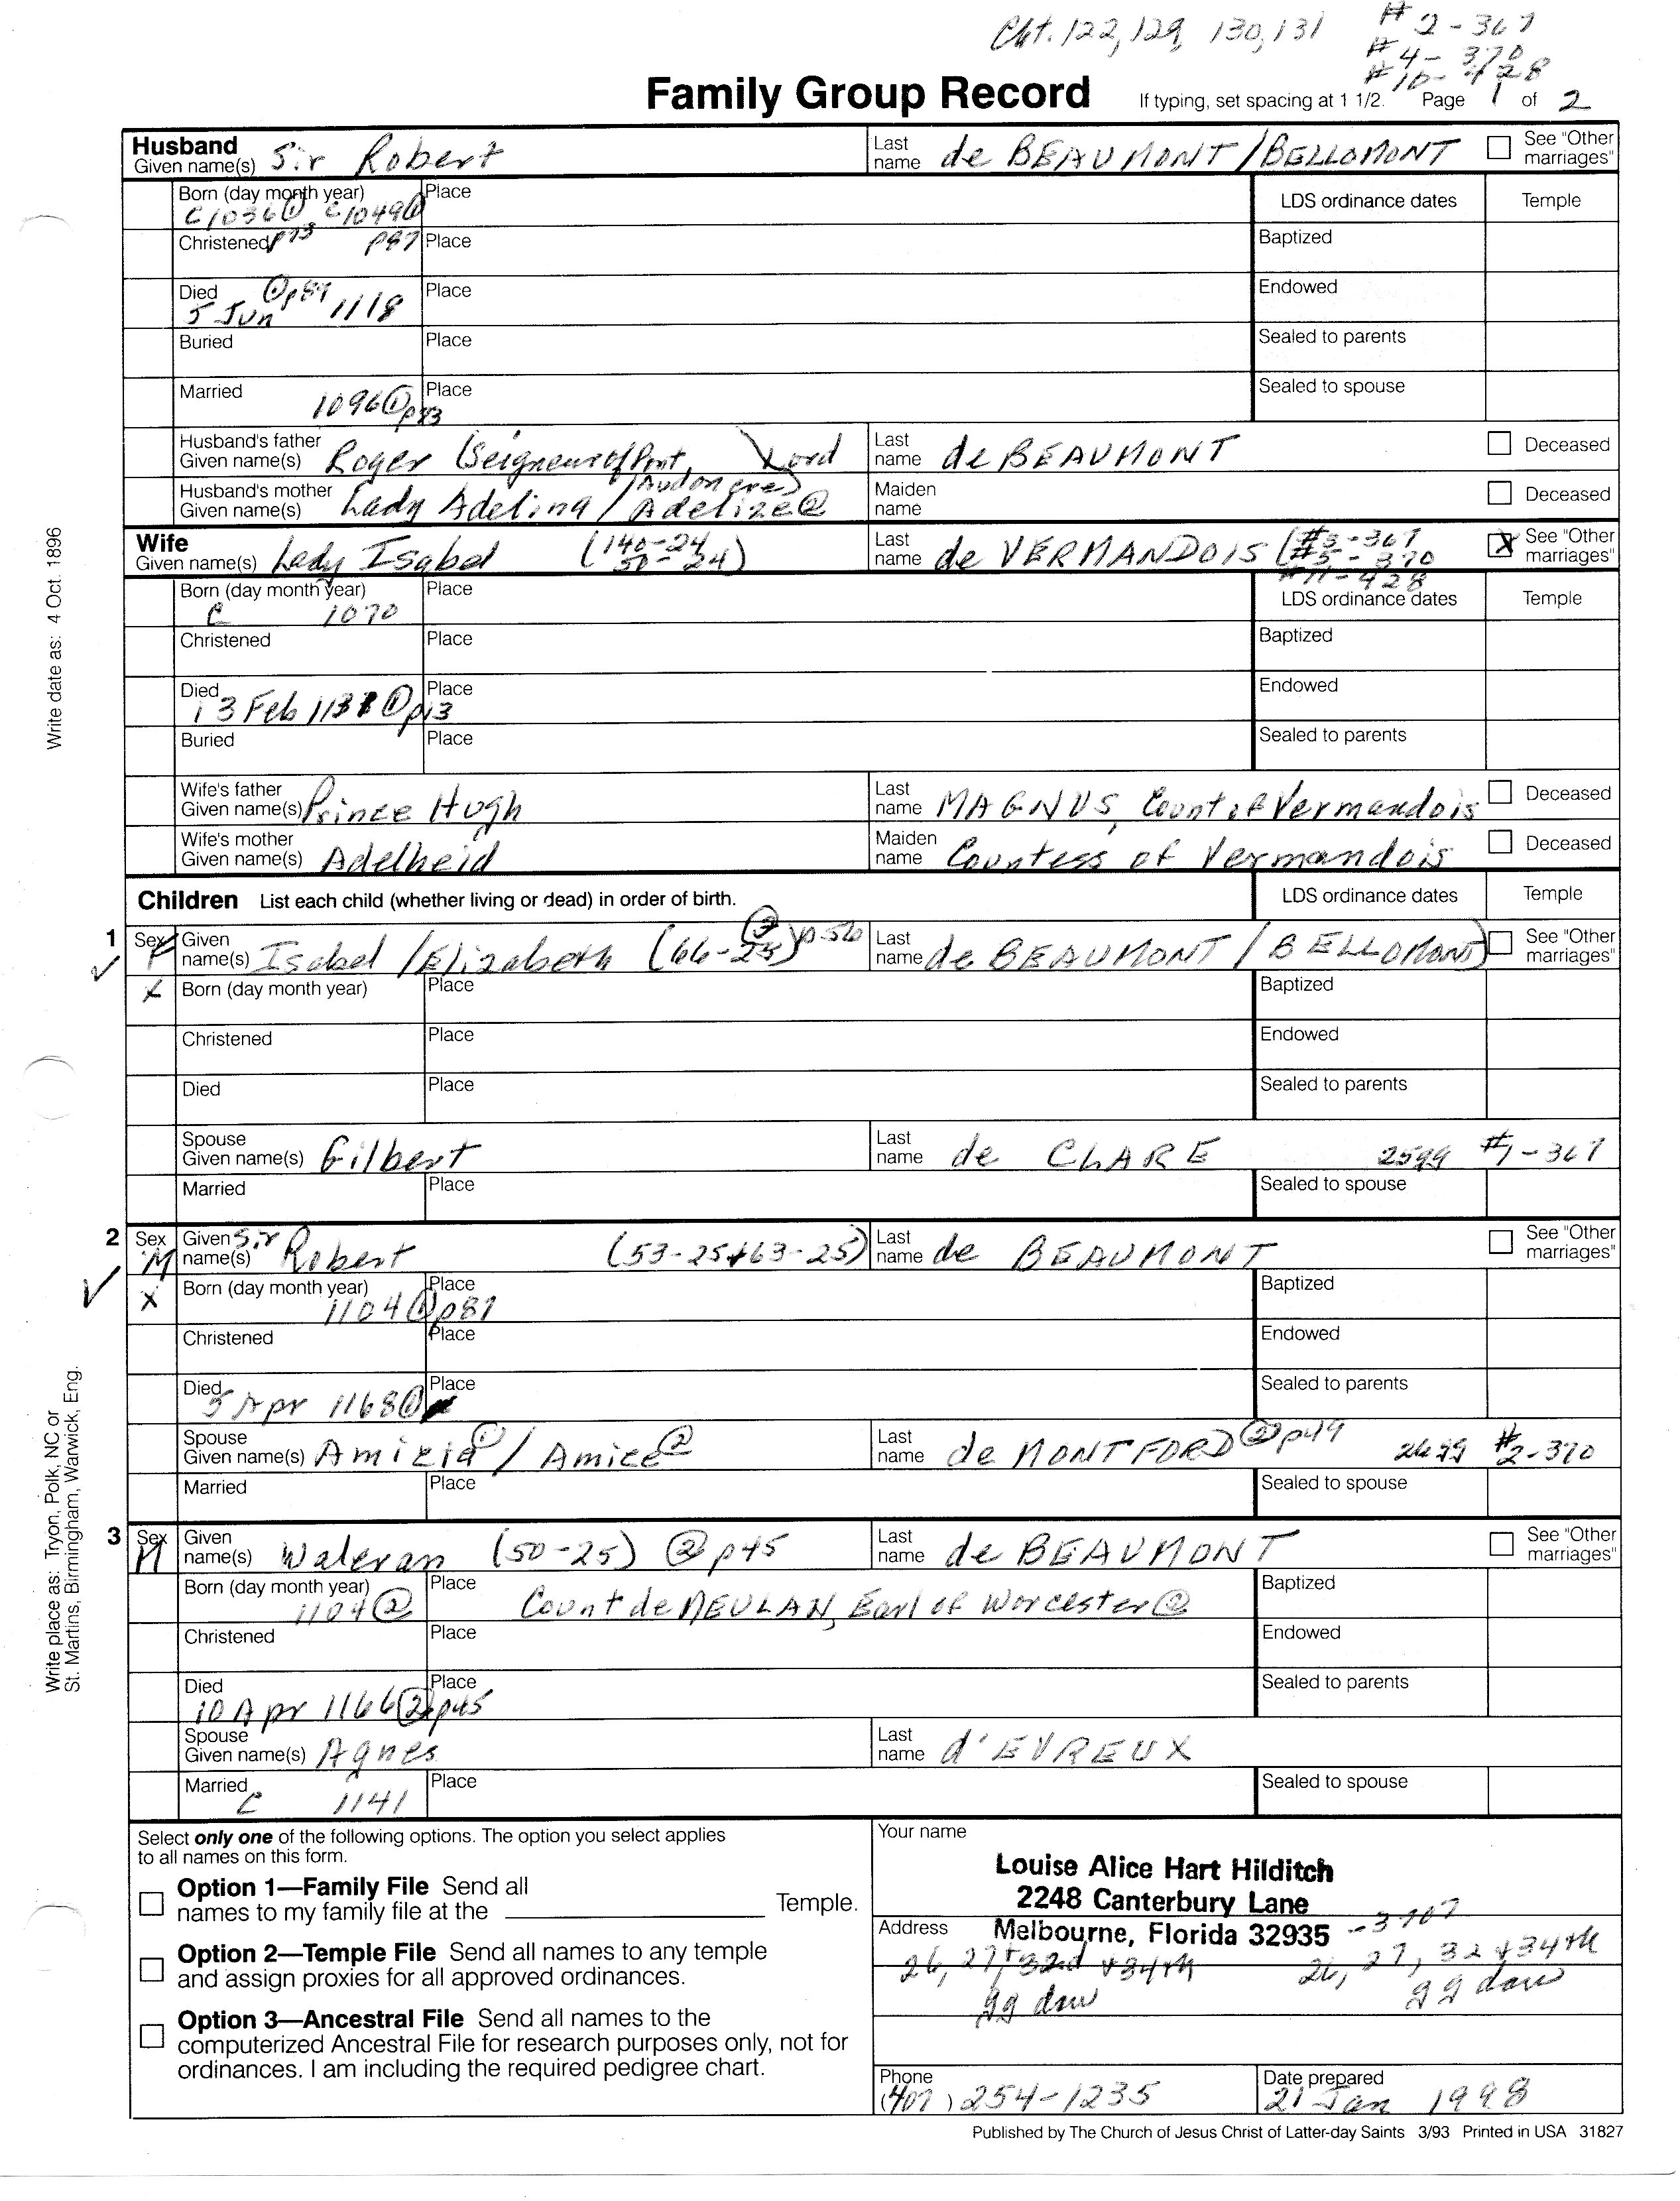 Cht. 122, 129, 130, 131 # 2 - 367
# 4 - 370
# 10 - 428
Family Group Record If typing, set spacing at 1 1/2. Page 1 of 2
Husband
Given name(s) Sir Robert Last name de BEAUMONT / BELLOMONT See "Other marriages"
Born (day month year) Place LDS ordinance dates Temple
C1036① C1049①
Christened p73 p87 Place Baptized
Died ①p87 Place Endowed
5 Jun 1118
Buried Place Sealed to parents
Married 1096①p83 Place Sealed to spouse
Husband's father
Given name(s) Roger (Seigneur of Pont, Lord Last name de BEAUMONT Deceased
Audomere)
Husband's mother
Given name(s) Lady Adelina / Adelize② Maiden name Deceased
Wife
Given name(s) Lady Isabel (140-24 50-24) Last name de VERMANDOIS (#3-367 See "Other marriages"
#5-370
#11-428
Born (day month year) Place LDS ordinance dates Temple
C 1070
Christened Place Baptized
Died Place Endowed
13 Feb 1131 ①p13
Buried Place Sealed to parents
Wife's father
Given name(s) Prince Hugh Last name MAGNUS, Count of Vermandois Deceased
Wife's mother
Given name(s) Adelheid Maiden name Countess of Vermandois Deceased
Children List each child (whether living or dead) in order of birth. LDS ordinance dates Temple
1 Sex F Given name(s) Isabel / Elizabeth (66-25) p56 Last name de BEAUMONT / BELLOMONT) See "Other marriages"
X Born (day month year) Place Baptized
Christened Place Endowed
Died Place Sealed to parents
Spouse
Given name(s) Gilbert Last name de CLARE 2599 #1-367
Married Place Sealed to spouse
2 Sex M Given name(s) Sir Robert (53-25+63-25) Last name de BEAUMONT See "Other marriages"
X Born (day month year) Place Baptized
1104①p87
Christened Place Endowed
Died Place Sealed to parents
5 Apr 1168①
Spouse
Given name(s) Amicia① / Amice② Last name de MONTFORD②p49 2699 #2-370
Married Place Sealed to spouse
3 Sex M Given name(s) Waleran (50-25) ②p45 Last name de BEAUMONT See "Other marriages"
Born (day month year) Place Baptized
1104② Count de MEULAN, Earl of Worcester②
Christened Place Endowed
Died Place Sealed to parents
10 Apr 1166②p45
Spouse
Given name(s) Agnes Last name d'EVREUX
Married Place Sealed to spouse
C 1141
Write date as: 4 Oct. 1896
Write place as: Tryon, Polk, NC or
St. Martins, Birmingham, Warwick, Eng.
Select only one of the following options. The option you select applies
to all names on this form.
Option 1—Family File Send all
names to my family file at the Temple.
Option 2—Temple File Send all names to any temple
and assign proxies for all approved ordinances.
Option 3—Ancestral File Send all names to the
computerized Ancestral File for research purposes only, not for
ordinances. I am including the required pedigree chart.
Your name
Louise Alice Hart Hilditch
2248 Canterbury Lane
Address Melbourne, Florida 32935 -3707
26, 27, + 32d + 34th 26, 27, 32 + 34th
gg dau gg dau
Phone
(407) 254-1235
Date prepared
21 Jan 1998
Published by The Church of Jesus Christ of Latter-day Saints 3/93 Printed in USA 31827